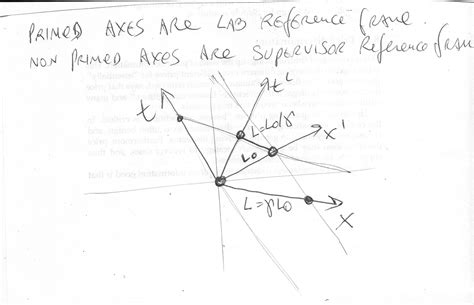 PRIMED AXES ARE LAB REFERENCE FRAME.
NON PRIMED AXES ARE SUPERVISOR REFERENCE FRAM
t
t'
L=L0/γ
x'
L0
L=γL0
x